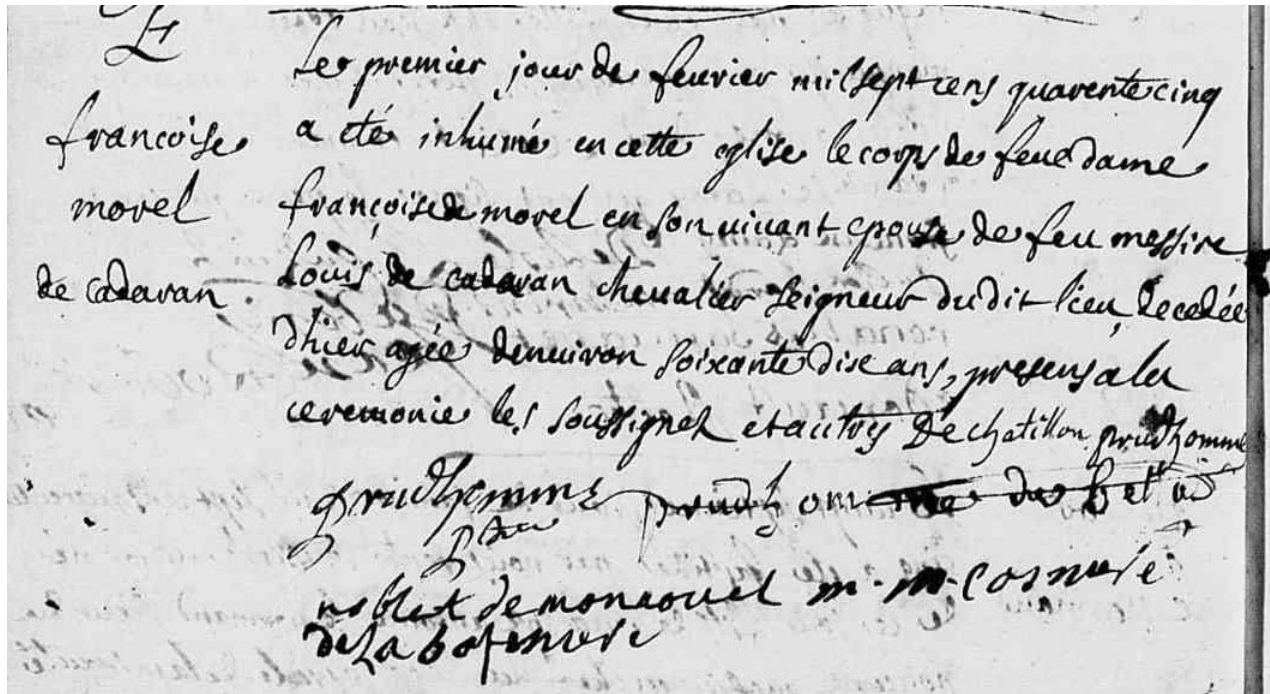 francoise
morel
de cadaran
Le premier jour de feuvrier mil sept cens quarente cinq
a eté inhumé en cette eglise le corps de feue dame
françoise de morel en son vivant epouse de feu messire
Louis de cadaran chevalier seigneur dudit lieu, decedée
d'hier agée denuiron soixante dise ans, presens a la
ceremonie les soussignez et autres De chatillon prudhomme
prudhomme prudhomme
noblet de m. m. cosnuere
de La